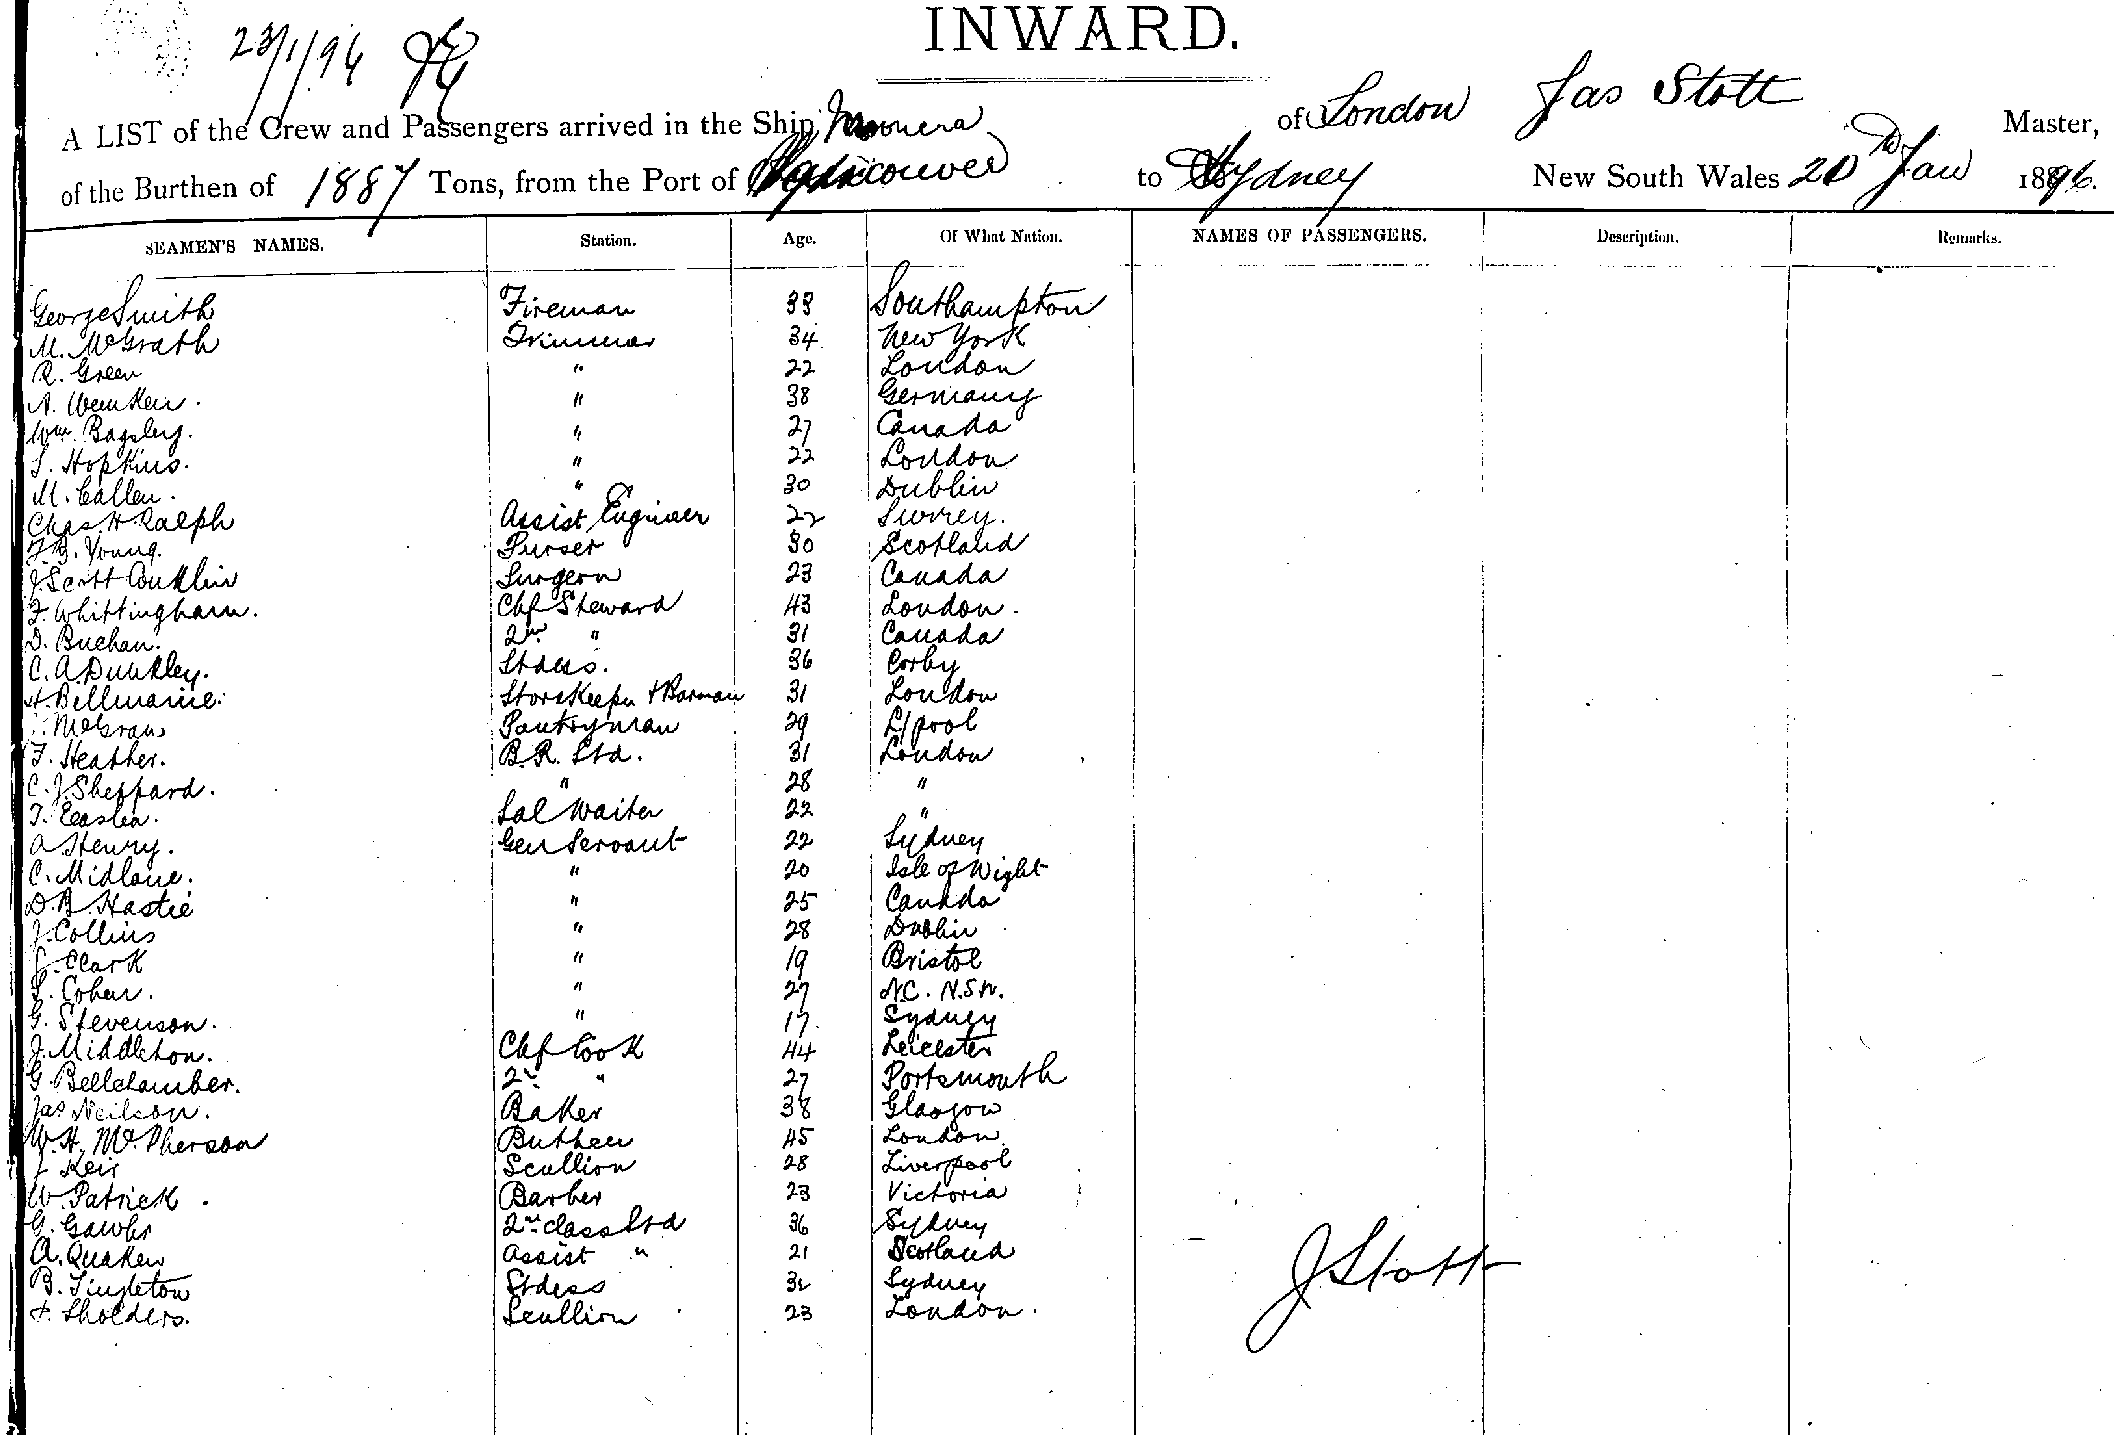 INWARD.
23/1/96
A LIST of the Crew and Passengers arrived in the Ship of London Jas Stott Master,
of the Burthen of 1887 Tons, from the Port of Vancouver to Sydney New South Wales 20th Jan 1896.
SEAMEN'S NAMES. Station. Age. Of What Nation. NAMES OF PASSENGERS. Description. Remarks.
George Smith Fireman 33 Southampton
M. McGrath Trimmer 34 New York
R. Green " 22 London
A. " 38 Germany
Wm. Bagsley. " 27 Canada
S. Hopkins. " 22 London
M. Callen. " 30 Dublin
Chas H Ralph Assist Engineer 22 Surrey.
F.B. Young. Purser 30 Scotland
J. Scott Conklin Surgeon 23 Canada
F. Whittingham. Chf Steward 43 London.
D. Buchan. 2nd " 31 Canada
C. A. Dunkley. Stdess. 36 Corby
H. Bellmaine. Storekeeper & Barman 31 London
McGran Pantryman 29 L/pool
F. Heather. B.R. Std. 31 London
C. J. Sheppard. " 28 "
T. Easlea. Sal Waiter 22 "
A Henry. Gen Servant 22 Sydney
C. Midlane. " 20 Isle of Wight
D. B. Hastie " 25 Canada
J. Collins " 28 Dublin
Clark " 19 Bristol
S. Cohen. " 27 N.C. N.S.W.
G. Stevenson. " 17. Sydney
J. Middleton. Chf Cook 44 Leicester
G. Bellchamber. 2nd " 27 Portsmouth
Jas Neilson. Baker 38 Glasgow
W. H. McPherson Butcher 45 London
J Keir Scullion 28 Liverpool
W. Patrick. Barber 23 Victoria
G. Gawler 2nd class Std 36 Sydney
A. Quaken Assist " 21 Scotland
B. Singleton Stdess 32 Sydney
F. Sholders. Scullion 23 London.
J Stott